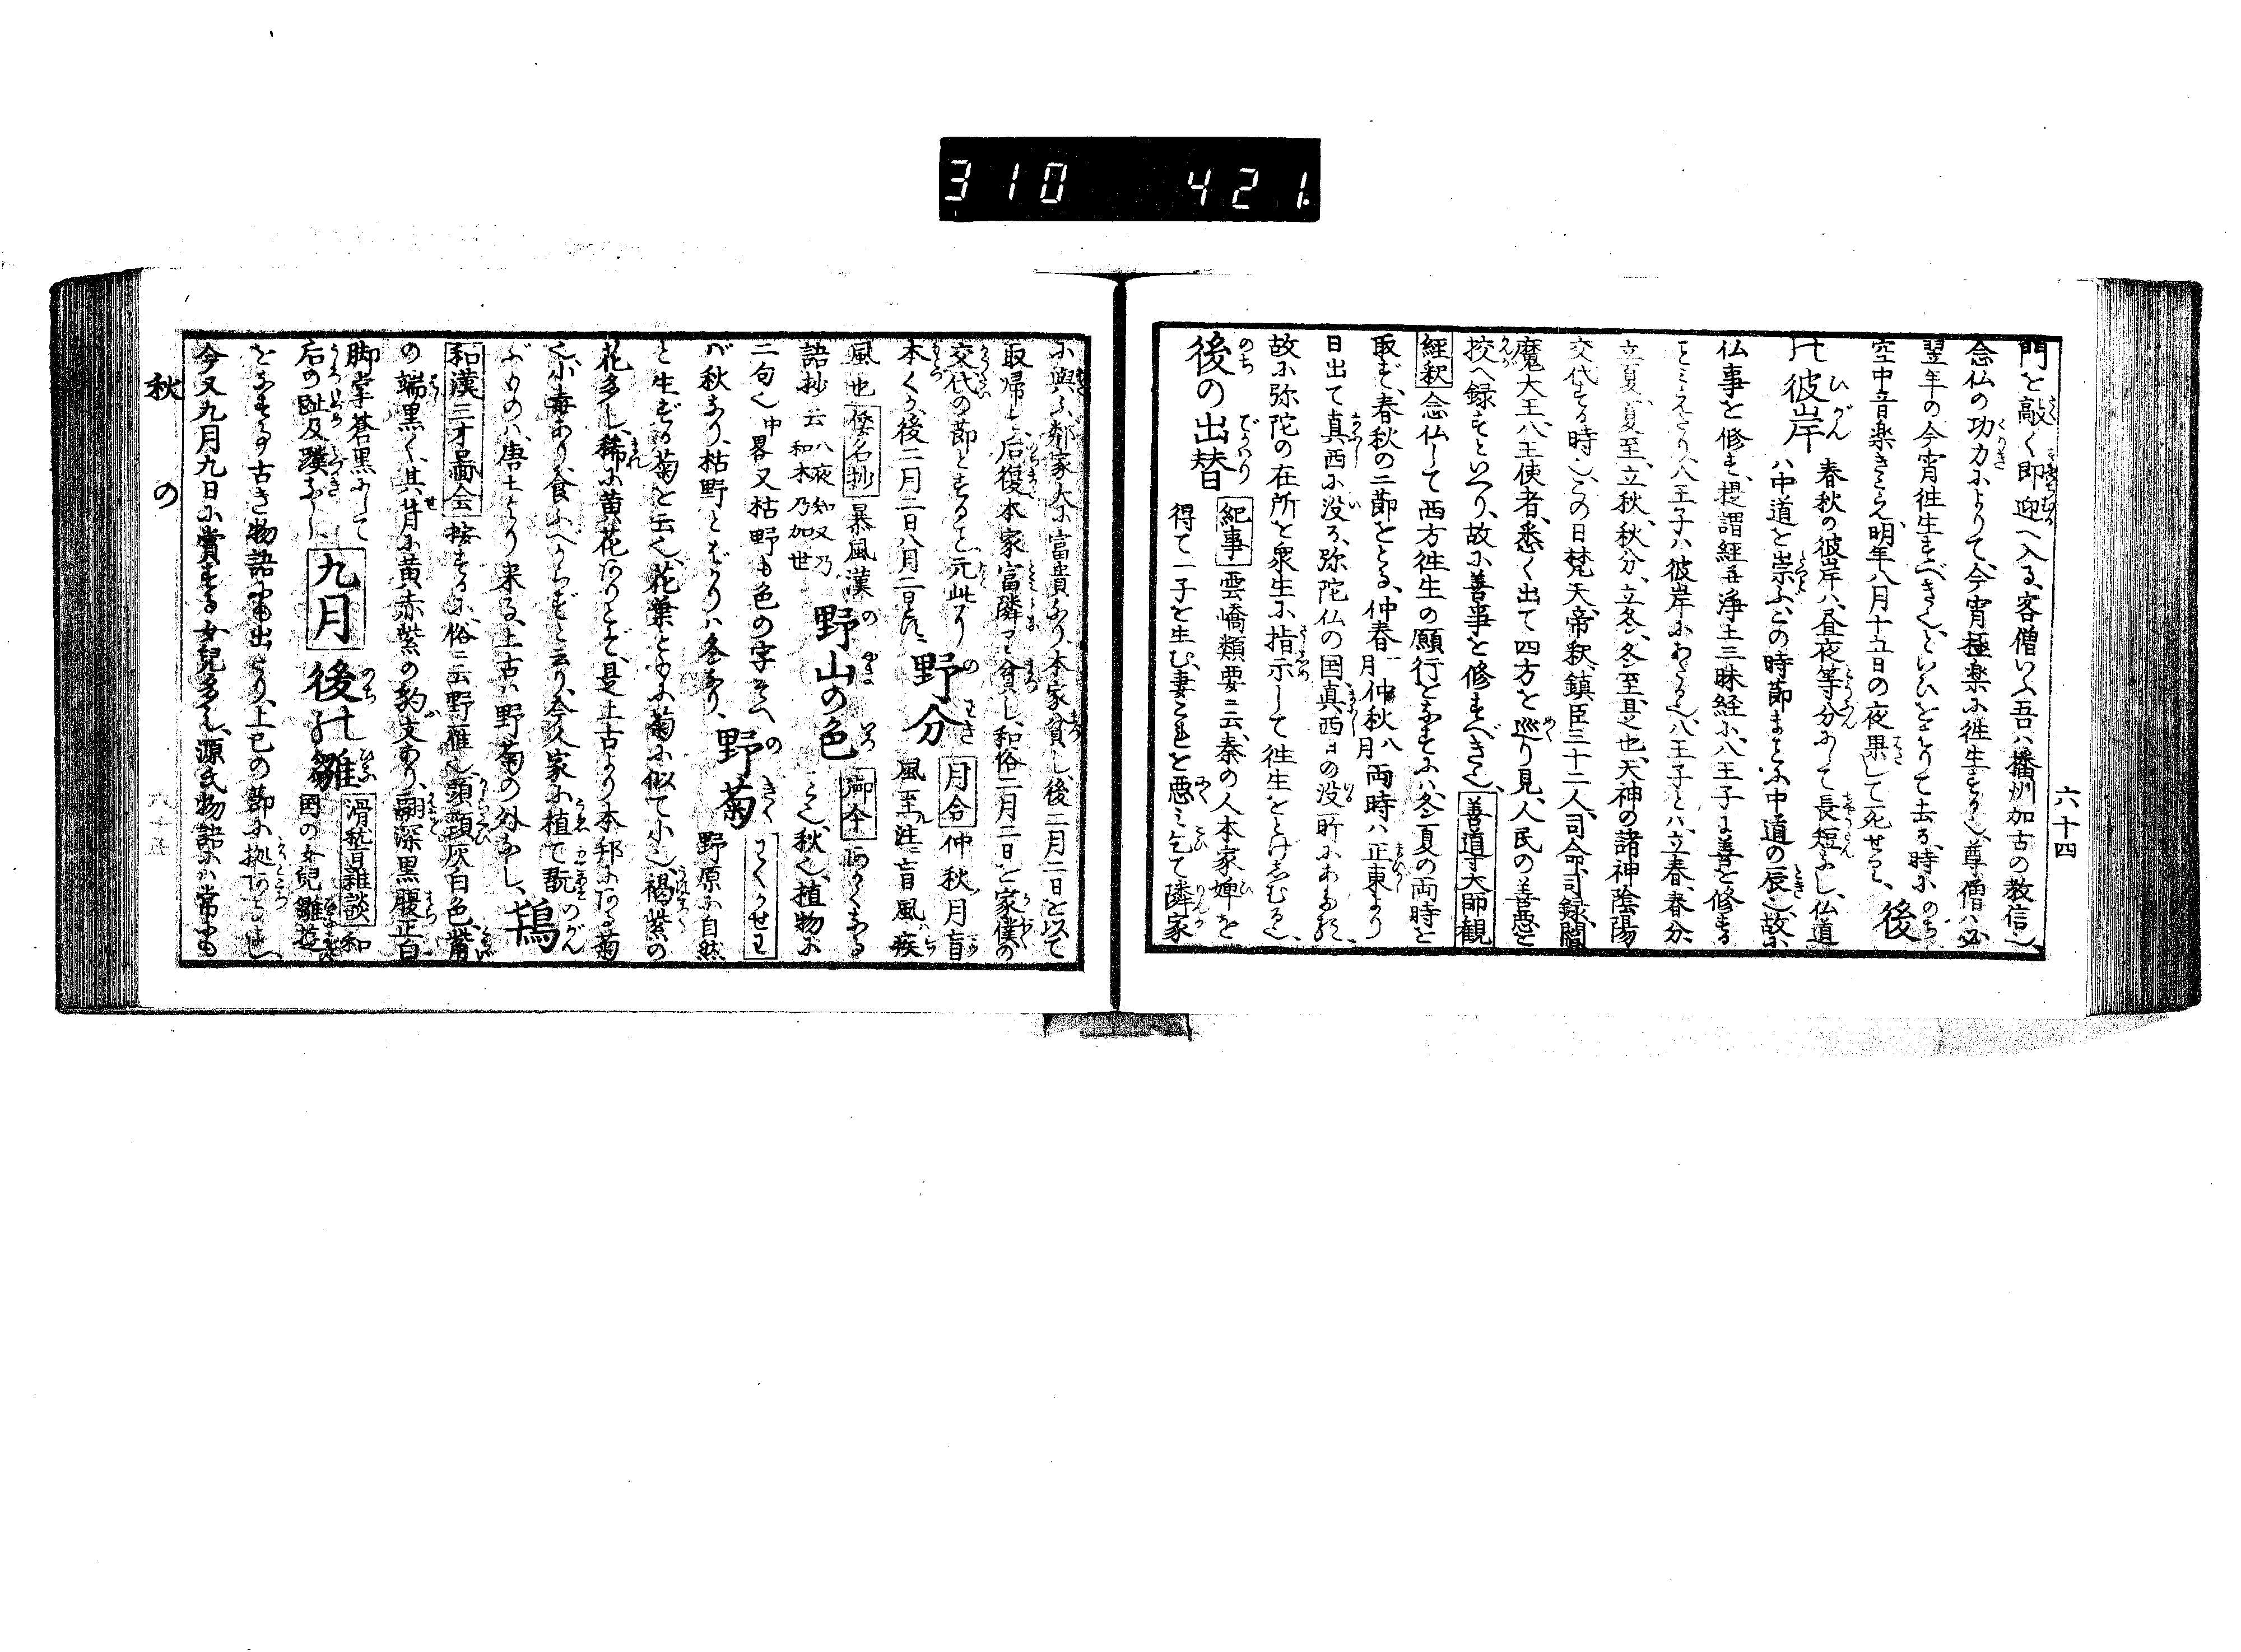 310 421.
六十四
門を敲く即迎へ入る、客僧いふ吾ハ播州加古の教信也、
念仏の功力によりて、今宵極楽に徃生する也、尊僧ハ必
翌年の今宵徃生すべき也、といひをはりて去る、時にのち
空中音楽きこえ、明年八月十五日の夜果して死せり、後
の彼岸 春秋の彼岸ハ、昼夜等分にして長短なし、仏道
ハ中道を崇ふ、この時節まことに中道の辰也、故に
仏事を修す、提謂経并浄土三昧経に、八王子に善を修する
ことみえたり、八王子ハ彼岸にあたる也、八王子とハ、立春、春分、
立夏、夏至、立秋、秋分、立冬、冬至、是也、天神の諸神陰陽
交代する時也、この日梵天、帝釈、鎮臣三十二人、司命、司録、閻
魔大王、八王使者、悉く出て四方を巡り見、人民の善悪を
挍へ録すといへり、故に善事を修すべき也、善道大師観
経釈 念仏して西方徃生の願行をなすにハ、冬夏の両時を
取ず、春秋の二節をとる、仲春二月仲秋八月両時ハ、正東より
日出て真西に没る、弥陀仏の国、真西日の没所にあたる、
故に弥陀の在所を衆生に指示して徃生をとげしむる也、
後の出替 紀事 雲嶠類要云、秦の人本家婢を
得て一子を生む、妻これを悪ミて隣家
に與ふ、鄰家大に富貴なり、本家貧し、後二月二日を以て
取帰し、后復本家富隣り貧し、和俗二月二日を家僕の
交代の節とすること、元此より
本く、後二月二日八月二日 野分 月令 仲秋ノ月盲
風至、注盲風ハ疾
風也 倭名抄 暴風漢
語抄云 八夜知又乃
和木乃加世 野山の色 御傘
也、秋也、植物に
二句也、中畧又枯野も色の字そへ
バ秋なり、枯野とばかりハ冬なり、 野菊 野原に自然
と生ずる菊を云也、花葉ともに菊に似て小也、褐紫の
花多し、稀に黄花ありとぞ、是上古より本邦にある菊
也、小毒あり、食ふべからずと云り、今人家に植て翫
ぶものハ、唐土より来る、上古ハ野菊の外なし、 鴇
和漢三才圖会 按するに、俗云野雁也、頭頸灰白色、觜
の端黒く、其背に黄赤紫の豹文あり、翮深黒、腹正白
脚掌蒼黒にして
后の趾及蹼なし、 九月 後の雛 滑稽雜談 和
国の女児雛遊
をなす事、古き物語にも出たり、上巳の節に
今又九月九日に賞する女兒多し、源氏物語にハ常にも
秋 の
六十五